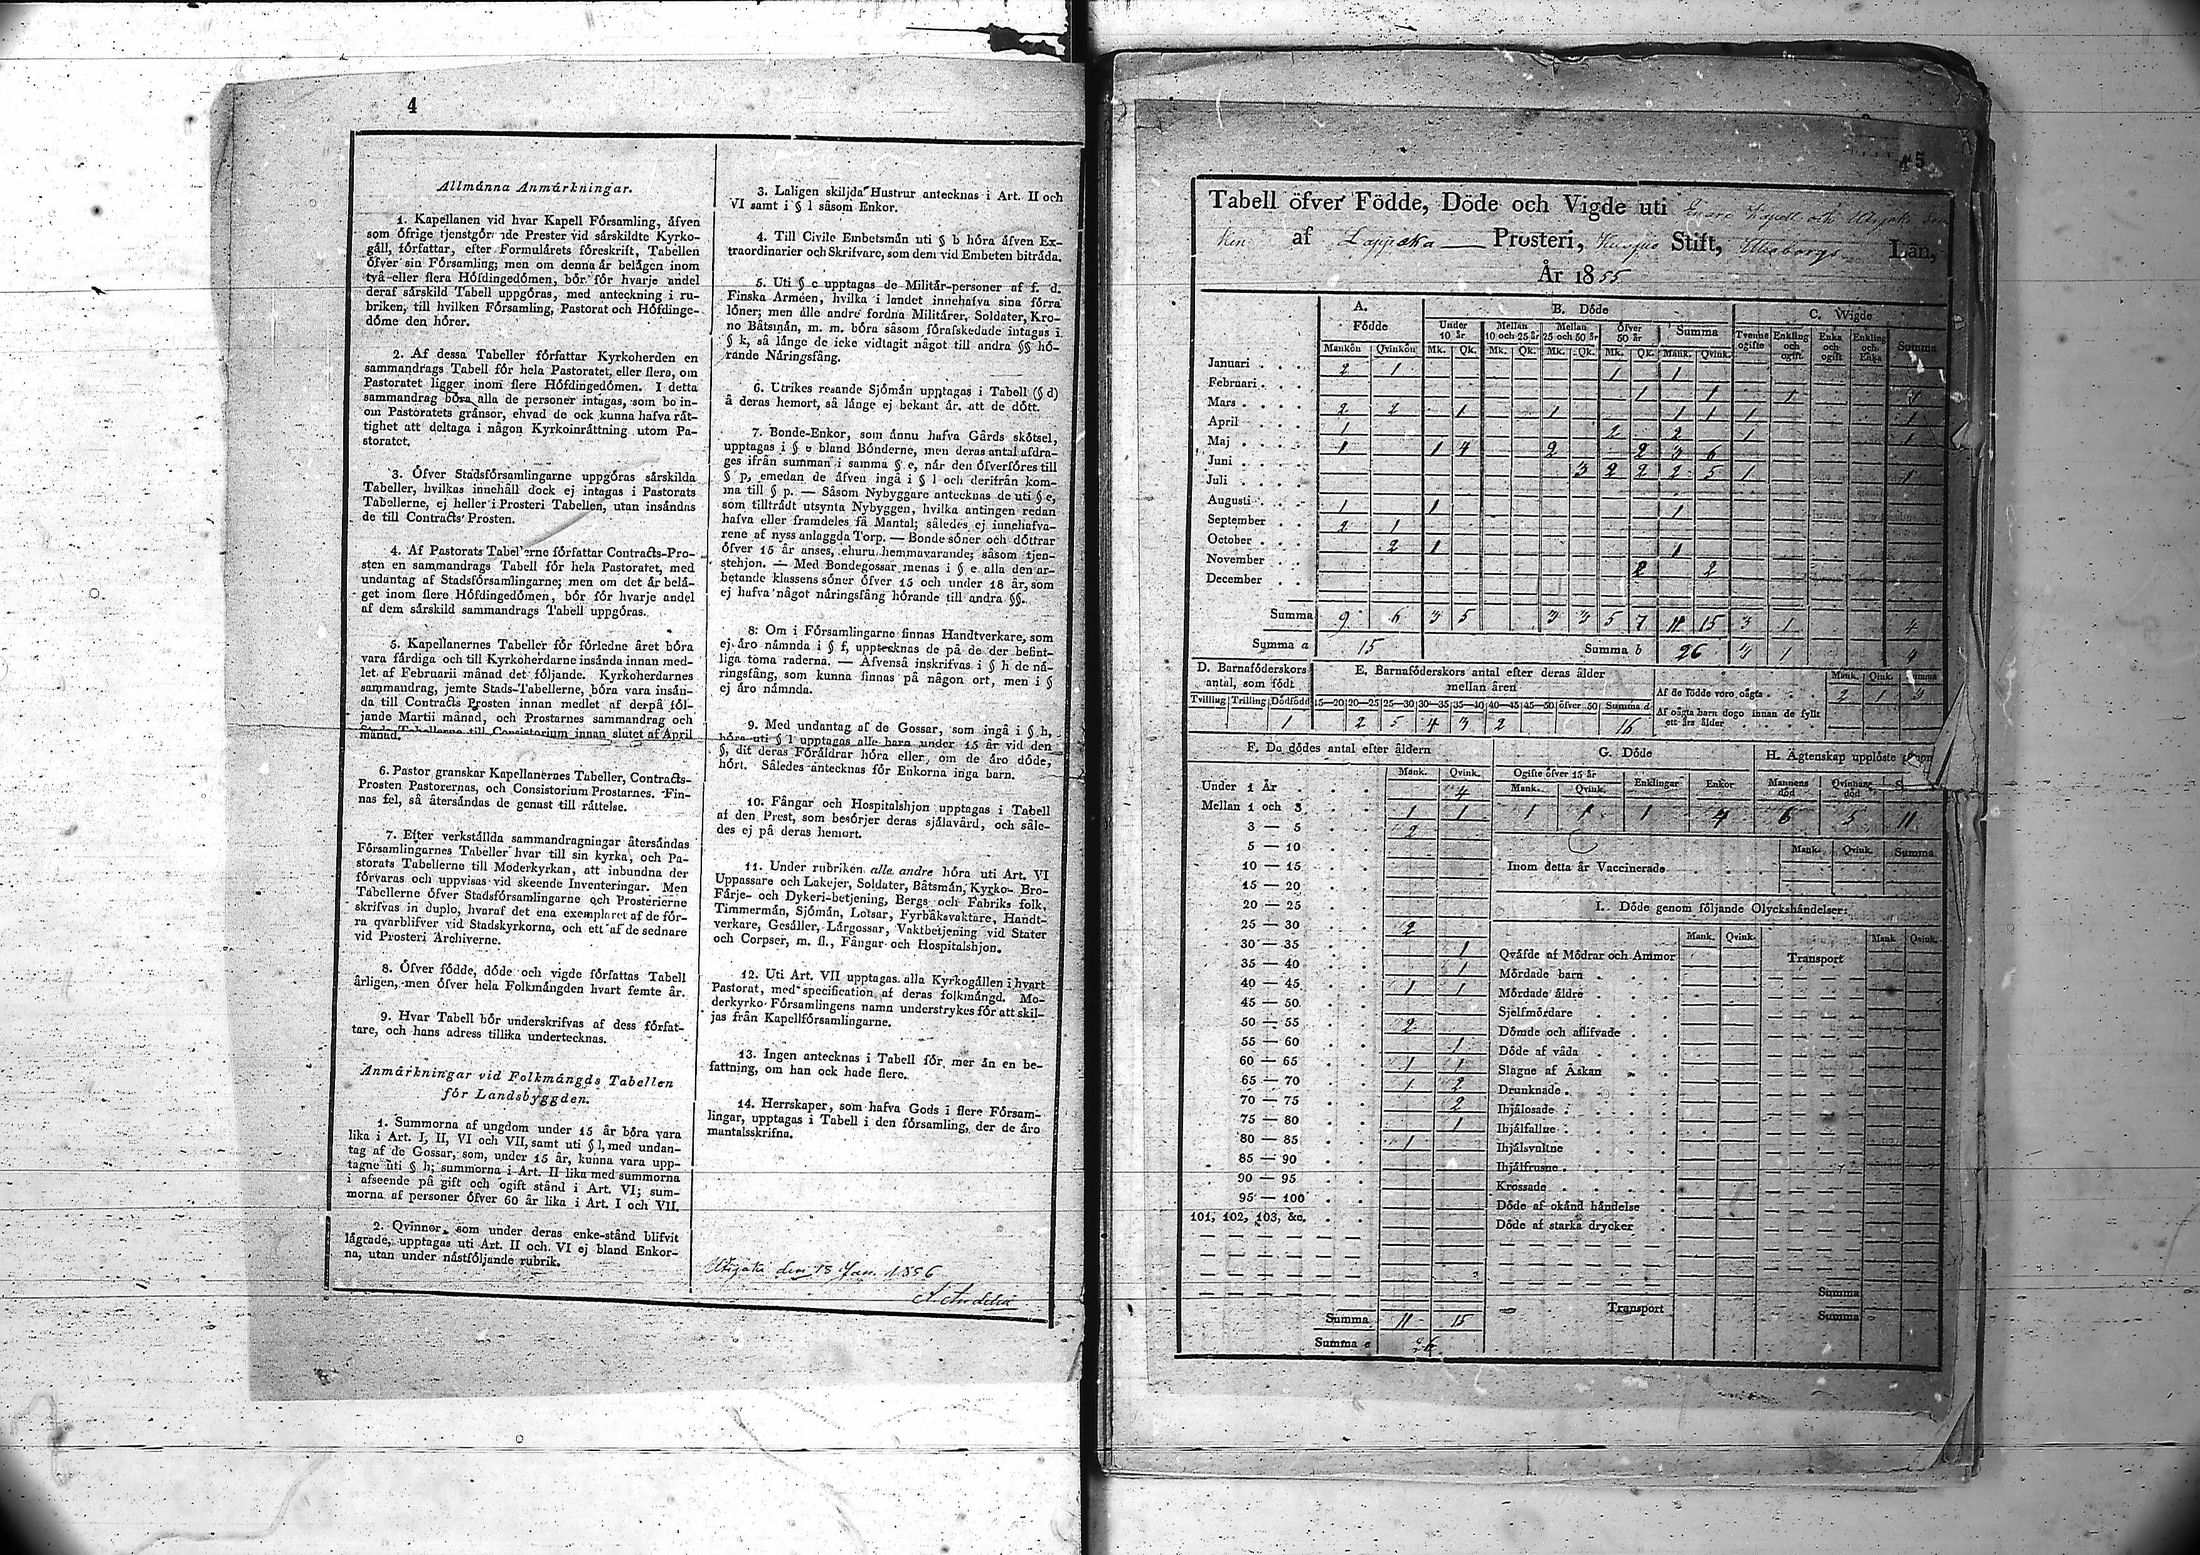 4
Allmänna Anmärkningar.
1. Kapellanen vid hvar Kapell Församling, äfven
som öfrige tjenstgör nde Prester vid särskildte Kyrko-
gäll, författar, efter Formulärets föreskrift, Tabellen
öfver sin Församling; men om denna är belägen inom
två eller flera Höfdingedömen, bör för hvarje andel
deraf särskild Tabell uppgöras, med anteckning i ru-
briken, till hvilken Församling, Pastorat och Höfdinge-
döme den hörer.
2. Af dessa Tabeller författar Kyrkoherden en
sammandrags Tabell för hela Pastoratet, eller flera, om
Pastoratet ligger inom flere Höfdingedömen. I detta
sammandrag böra alla de personer intagas, som bo in-
om Pastoratets gränsor, ehvad de ock kunna hafva rät-
tighet att deltaga i någon Kyrkoinrättning utom Pa-
storatet.
3. Öfver Stadsförsamlingarne uppgöras särskilda
Tabeller, hvilkas innehåll dock ej intagas i Pastorats
Tabellerne, ej heller i Prosteri Tabellen, utan insändas
de till Contracts Prosten.
4. Af Pastorats Tabellerne författar Contracts-Pro-
sten en sammandrags Tabell för hela Pastoratet, med
undantag af Stadsförsamlingarne; men om det är belä-
get inom flere Höfdingedömen, bör för hvarje andel
af dem särskild sammandrags Tabell uppgöras.
5. Kapellanernes Tabeller för förledne året böra
vara färdiga och till Kyrkoherdarne insända innan med-
let af Februarii månad det följande. Kyrkoherdarnes
sammandrag, jemte Stads-Tabellerne, böra vara insän-
da till Contracts Prosten innan medlet af derpå föl-
jande Martii månad, och Prostarnes sammandrag och
Stads Tabellerne till Consistorium innan slutet af April
månad.
6. Pastor granskar Kapellanernes Tabeller, Contracts-
Prosten Pastorernas, och Consistorium Prostarnes. Fin-
nas fel, så återsändas de genast till rättelse.
7. Efter verkställda sammandragningar återsändas
Församlingarnes Tabeller hvar till sin kyrka, och Pa-
storats Tabellerne till Moderkyrkan, att inbundna der
förvaras och uppvisas vid skeende Inventeringar. Men
Tabellerne öfver Stadsförsamlingarne och Prosterierne
skrifvas in duplo, hvaraf det ena exemplaret af de för-
ra qvarblifver vid Stadskyrkorna, och ett af de sednare
vid Prosteri Archiverne.
8. Öfver födde, döde och vigde författas Tabell
årligen, men öfver hela Folkmängden hvart femte år.
9. Hvar Tabell bör underskrifvas af dess förfat-
tare, och hans adress tillika undertecknas.
Anmärkningar vid Folkmängds Tabellen
för Landsbyggden.
1. Summorna af ungdom under 15 år böra vara
lika i Art. I, II, VI och VII, samt uti § l, med undan-
tag af de Gossar, som, under 15 år, kunna vara upp-
tagne uti § h; summorna i Art. II lika med summorna
i afseende på gift och ogift stånd i Art. VI; sum-
morna af personer öfver 60 år lika i Art. I och VII.
2. Qvinnor, som under deras enke-stånd blifvit
lägrade, upptagas uti Art. II och VI ej bland Enkor-
na, utan under nästföljande rubrik.
3. Laligen skiljda Hustrur antecknas i Art. II och
VI samt i § l såsom Enkor.
4. Till Civile Embetsmän uti § b höra äfven Ex-
traordinarier och Skrifvare, som dem vid Embeten biträda.
5. Uti § c upptagas de Militär-personer af f. d.
Finska Arméen, hvilka i landet innehafva sina förra
löner; men alle andre fordna Militärer, Soldater, Kro-
no Båtsmän, m. m. böra såsom förafskedade intagas i
§ k, så länge de icke vidtagit något till andra §§ hö-
rande Näringsfång.
6. Utrikes resande Sjömän upptagas i Tabell (§ d)
å deras hemort, så länge ej bekant är, att de dött.
7. Bonde-Enkor, som ännu hafva Gårds skötsel,
upptagas i § e bland Bönderne, men deras antal afdra-
ges ifrån summan i samma § e, når den öfverföres till
§ p, emedan de äfven ingå i § l och derifrån kom-
ma till § p. — Såsom Nybyggare antecknas de uti § e,
som tillträdt utsynta Nybyggen, hvilka antingen redan
hafva eller framdeles få Mantal; således ej innehafva-
rene af nyss anlaggda Torp. — Bonde söner och döttrar
öfver 15 år anses, ehuru hemmavarande, såsom tjen-
stehjon. — Med Bondegossar menas i § e alla den ar-
betande klassens söner öfver 15 och under 18 år, som
ej hafva något näringsfång hörande till andra §§.
8: Om i Församlingarne finnas Handtverkare, som
ej äro nämnda i § f, upptecknas de på de der befint-
liga toma raderna. — Äfvenså inskrifvas i § h de nä-
ringsfång, som kunna finnas på någon ort, men i §
ej äro nämnda.
9. Med undantag af de Gossar, som ingå i § h,
böra uti § l upptagas alle barn under 15 år vid den
§, dit deras Föräldrar höra eller, om de äro döde,
hört. Således antecknas för Enkorna inga barn.
10. Fångar och Hospitalshjon upptagas i Tabell
af den Prest, som besörjer deras själavård, och såle-
des ej på deras hemort.
11. Under rubriken alle andre höra uti Art. VI
Uppassare och Lakejer, Soldater, Båtsmän, Kyrko- Bro-
Färje- och Dykeri-betjening, Bergs och Fabriks folk,
Timmermän, Sjömän, Lotsar, Fyrbåksvaktare, Handt-
verkare, Gesäller, Lärgossar, Vaktbetjening vid Stater
och Corpser, m. fl., Fångar och Hospitalshjon.
12. Uti Art. VII upptagas alla Kyrkogällen i hvart
Pastorat, med specification af deras folkmängd. Mo-
derkyrko Församlingens namn understrykes för att skil-
jas från Kapellförsamlingarne.
13. Ingen antecknas i Tabell för mer än en be-
fattning, om han ock hade flere.
14. Herrskaper, som hafva Gods i flere Försam-
lingar, upptagas i Tabell i den församling, der de äro
mantalsskrifna.
den 13 Jan. 1856
5
Tabell öfver Födde, Döde och Vigde uti Enare Kapell och Utsjoki
af Lappska Prosteri, Kuopio Stift, Uleåborgs Län,
År 1855
A. Födde B. Döde C. Wigde
Under 10 år Mellan 10 och 25 år Mellan 25 och 50 år Öfver 50 år Summa Tvenne ogifte Enkling och ogift Enka och ogift Enkling och Enka Summa
Mankön Qvinkön Mk. Qk. Mk. Qk. Mk. Qk. Mk. Qk. Mank. Qvink.
Januari 2 1 1 1
Februari 1 1 1 1
Mars 2 2 1 1 1 1 1 1
April 1 2 2 1 1
Maj 1 1 4 2 2 3 6
Juni 3 2 2 2 5 1 1
Juli
Augusti 1 1 1
September 2 1
October 2 1 1
November 2 2
December
Summa 9 6 3 5 3 3 5 7 11 15 3 1 4
Summa a 15 Summa b 26 3 1 4
D. Barnaföderskors antal, som födt
Tvilling Trilling Dödfödd
1
E. Barnaföderskors antal efter deras ålder mellan åren
15—20 20—25 25—30 30—35 35—40 40—45 45—50 öfver 50 Summa d
2 5 4 3 2 16
Mank. Qink. Summa
Af de födde voro oägta 2 1 3
Af oägta barn dogo innan de fyllt
ett års ålder
F. De dödes antal efter åldern
Mank. Qvink.
Under 1 År 4
Mellan 1 och 3 1 1
3 — 5 2
5 — 10
10 — 15
15 — 20
20 — 25
25 — 30 2
30 — 35 1
35 — 40 1
40 — 45 1 1
45 — 50
50 — 55 2
55 — 60 1
60 — 65 1 1
65 — 70 1 2
70 — 75 2
75 — 80 1
80 — 85 1
85 — 90
90 — 95
95 — 100
101, 102, 103, &c.
Summa 11 15
Summa e 26
G. Döde
Ogifte öfver 15 år Enklingar Enkor
Mank. Qvink.
1 1 1 4
H. Ägtenskap upplöste genom
Mannens död Qvinnans död
6 5 11
Mank. Qvink. Summa
Inom detta år Vaccinerade
I. Döde genom följande Olyckshändelser:
Mank. Qvink. Mank Qvink.
Qväfde af Mödrar och Ammor Transport
Mördade barn
Mördade äldre
Sjelfmördare
Dömde och aflifvade
Döde af våda
Slagne af Åskan
Drunknade
Ihjälosade
Ihjälfallne
Ihjälsvultne
Ihjälfrusne
Krossade
Döde af okänd händelse
Döde af starka drycker
Summa
Transport Summa